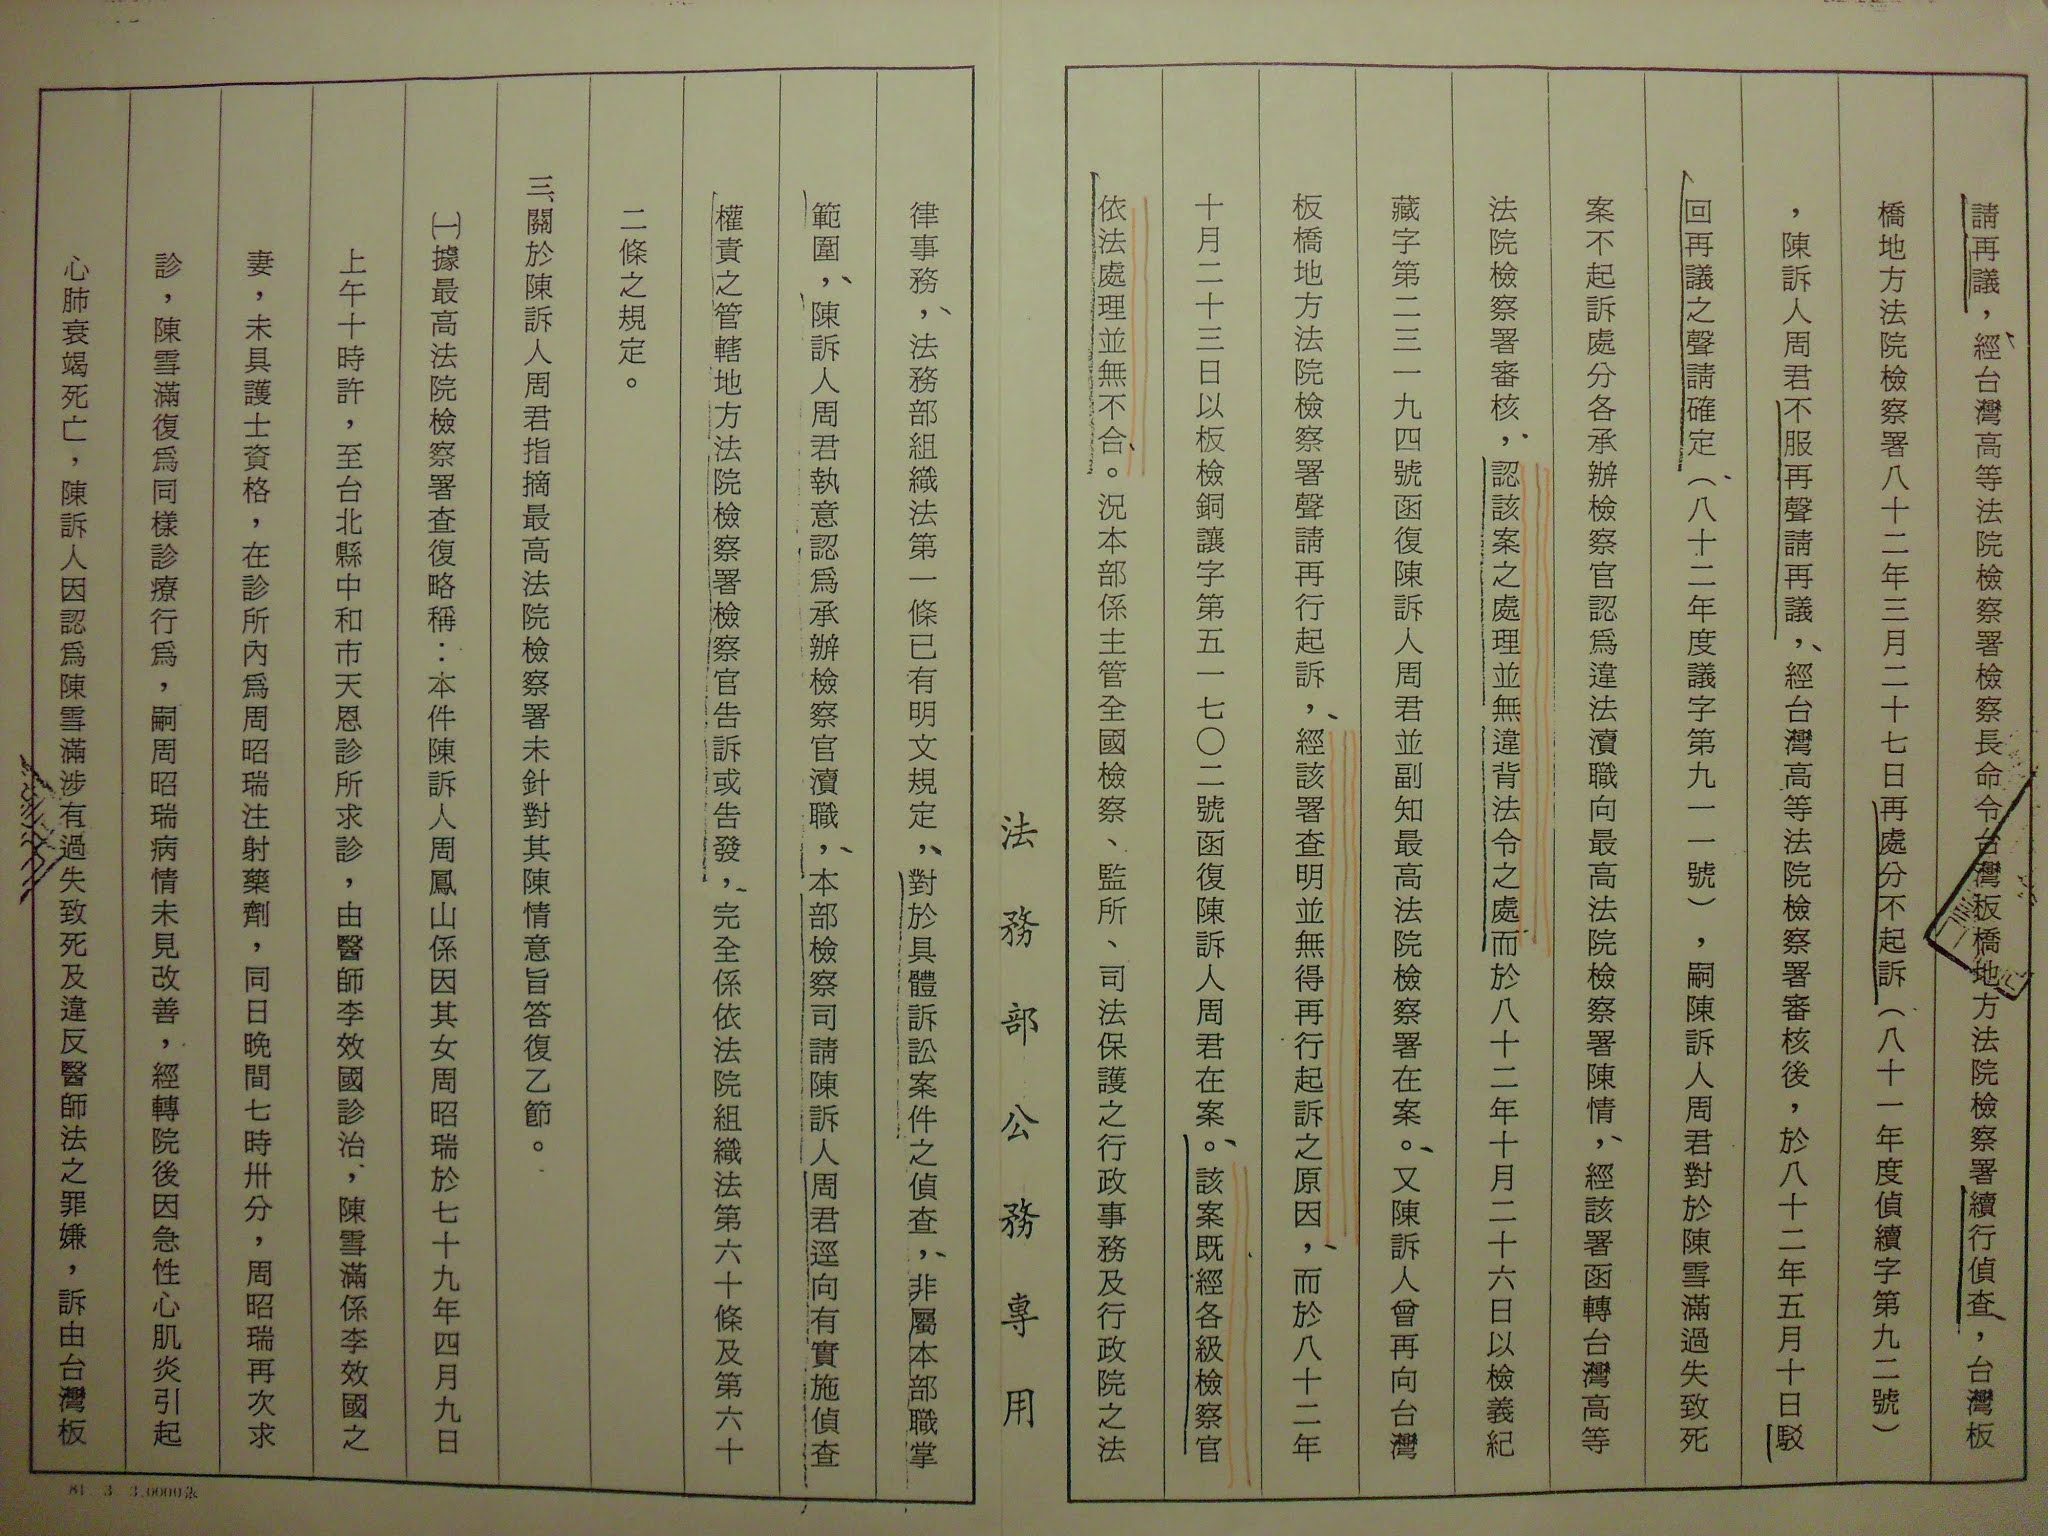 請再議，經台灣高等法院檢察署檢察長命令台灣板橋地方法院檢察署續行偵查，台灣板
橋地方法院檢察署八十二年三月二十七日再處分不起訴（八十一年度偵續字第九二號）
，陳訴人周君不服再聲請再議，經台灣高等法院檢察署審核後，於八十二年五月十日駁
回再議之聲請確定（八十二年度議字第九一一號），嗣陳訴人周君對於陳雪滿過失致死
案不起訴處分各承辦檢察官認爲違法瀆職向最高法院檢察署陳情，經該署函轉台灣高等
法院檢察署審核，認該案之處理並無違背法令之處而於八十二年十月二十六日以檢義紀
藏字第二三一九四號函復陳訴人周君並副知最高法院檢察署在案。又陳訴人曾再向台灣
板橋地方法院檢察署聲請再行起訴，經該署查明並無得再行起訴之原因，而於八十二年
十月二十三日以板檢銅讓字第五一七〇二號函復陳訴人周君在案。該案既經各級檢察官
依法處理並無不合。況本部係主管全國檢察、監所、司法保護之行政事務及行政院之法
法務部公務專用
律事務，法務部組織法第一條已有明文規定，對於具體訴訟案件之偵查，非屬本部職掌
範圍，陳訴人周君執意認爲承辦檢察官瀆職，本部檢察司請陳訴人周君逕向有實施偵查
權責之管轄地方法院檢察署檢察官告訴或告發，完全係依法院組織法第六十條及第六十
二條之規定。
三、關於陳訴人周君指摘最高法院檢察署未針對其陳情意旨答復乙節。
㈠據最高法院檢察署查復略稱：本件陳訴人周鳳山係因其女周昭瑞於七十九年四月九日
上午十時許，至台北縣中和市天恩診所求診，由醫師李效國診治，陳雪滿係李效國之
妻，未具護士資格，在診所內爲周昭瑞注射藥劑，同日晚間七時卅分，周昭瑞再次求
診，陳雪滿復爲同樣診療行爲，嗣周昭瑞病情未見改善，經轉院後因急性心肌炎引起
心肺衰竭死亡，陳訴人因認爲陳雪滿涉有過失致死及違反醫師法之罪嫌，訴由台灣板
81. 3. 3.0000張